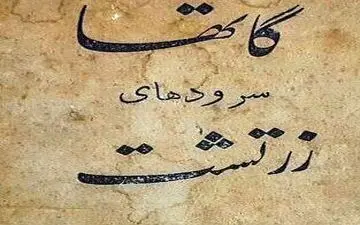 گاتها
سرودهای
زرتشت